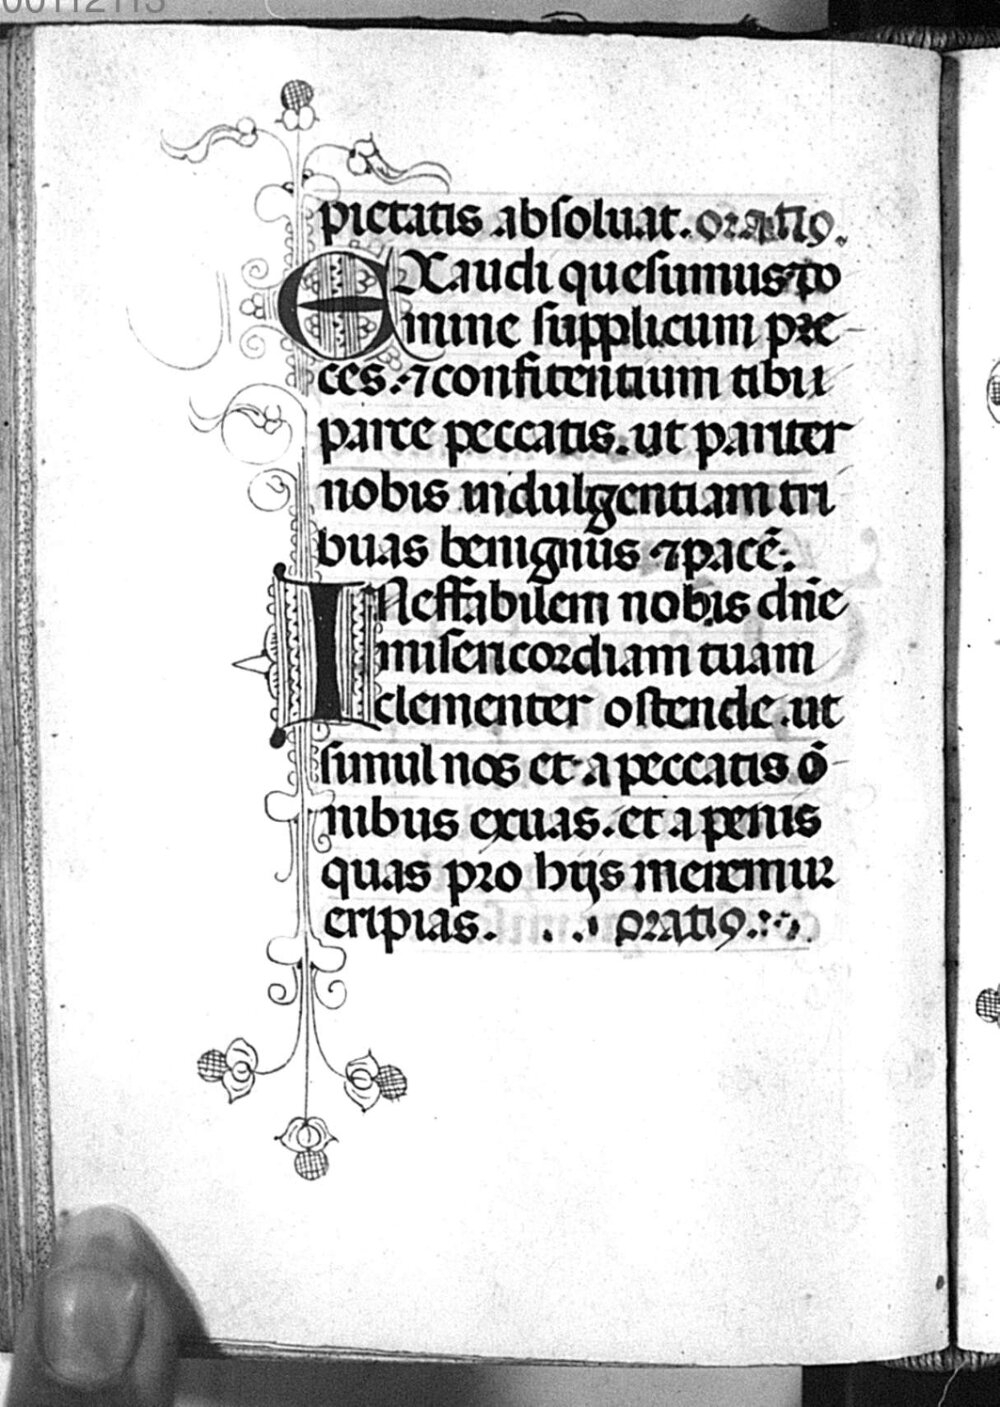 00112113
pietatis absoluat. oratio.
EXaudi quesumus do
mine supplicum pre
ces. ⁊ confitentium tibi
parce peccatis. ut pariter
nobis indulgentiam tri
buas benignus ⁊ pacē.
INeffabilem nobis dñe
misericordiam tuam
clementer ostende. ut
simul nos et a peccatis ō
nibus exuas. et a penis
quas pro hijs meremur
eripias. oratio.